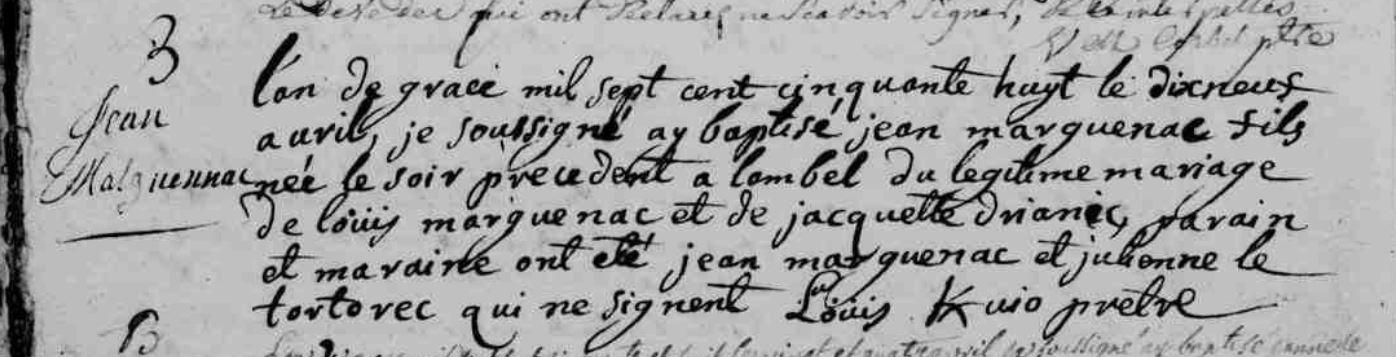 qui ont
B
Jean
Malguennac
l'an de grace mil sept cent cinquante huyt le dixneuf
avril, je soussigné ay baptisé jean marguenac fils
née le soir precedent a lombel du legitime mariage
de loüis marguenac et de jacquette drianic, parain
et maraine ont eté jean marguenac et julienne le
tortorec qui ne signent Loüis Kvio prètre
B